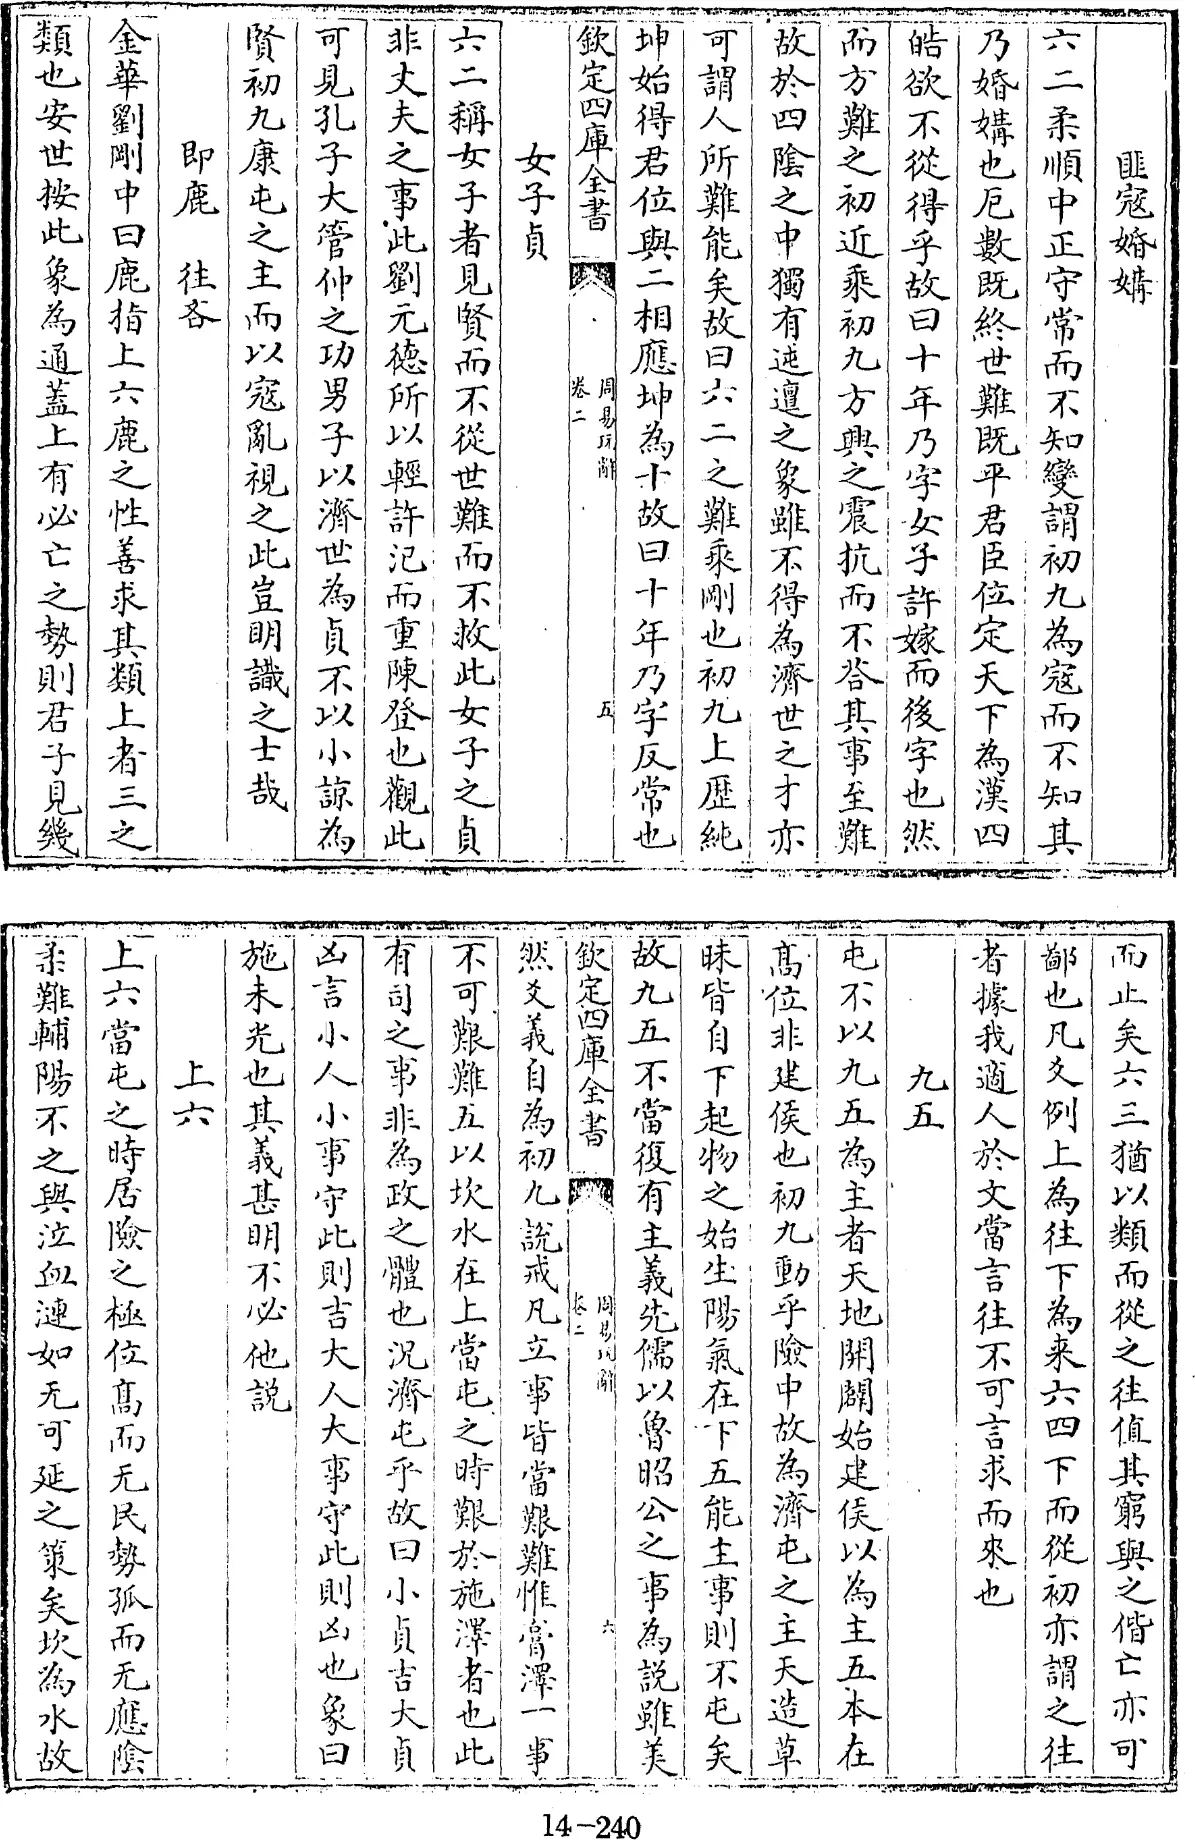 匪寇婚媾
六二柔順中正守常而不知變謂初九為寇而不知其
乃婚媾也厄數既終世難既平君臣位定天下為漢四
皓欲不從得乎故曰十年乃字女子許嫁而後字也然
而方難之初近乘初九方興之震抗而不答其事至難
故於四陰之中獨有迍邅之象雖不得為濟世之才亦
可謂人所難能矣故曰六二之難乘剛也初九上歴純
坤始得君位與二相應坤為十故曰十年乃字反常也
欽定四庫全書
周易玩辭
卷二
五
女子貞
六二稱女子者見賢而不從世難而不救此女子之貞
非丈夫之事此劉元德所以輕許汜而重陳登也觀此
可見孔子大管仲之功男子以濟世為貞不以小諒為
賢初九康屯之主而以寇亂視之此豈明識之士哉
即鹿 往吝
金華劉剛中曰鹿指上六鹿之性善求其類上者三之
類也安世按此象為通蓋上有必亡之勢則君子見幾
而止矣六三猶以類而從之往值其窮與之偕亡亦可
鄙也凡爻例上為往下為来六四下而從初亦謂之往
者據我適人於文當言往不可言求而來也
九五
屯不以九五為主者天地開闢始建侯以為主五本在
髙位非建侯也初九動乎險中故為濟屯之主天造草
昧皆自下起物之始生陽氣在下五能主事則不屯矣
故九五不當復有主義先儒以魯昭公之事為説雖美
欽定四庫全書
周易玩辭
卷二
六
然爻義自為初九説戒凡立事皆當艱難惟膏澤一事
不可艱難五以坎水在上當屯之時艱於施澤者也此
有司之事非為政之體也況濟屯乎故曰小貞吉大貞
凶言小人小事守此則吉大人大事守此則凶也象曰
施未光也其義甚明不必他説
上六
上六當屯之時居險之極位髙而无民勢孤而无應陰
柔難輔陽不之與泣血漣如无可延之策矣坎為水故
14-240